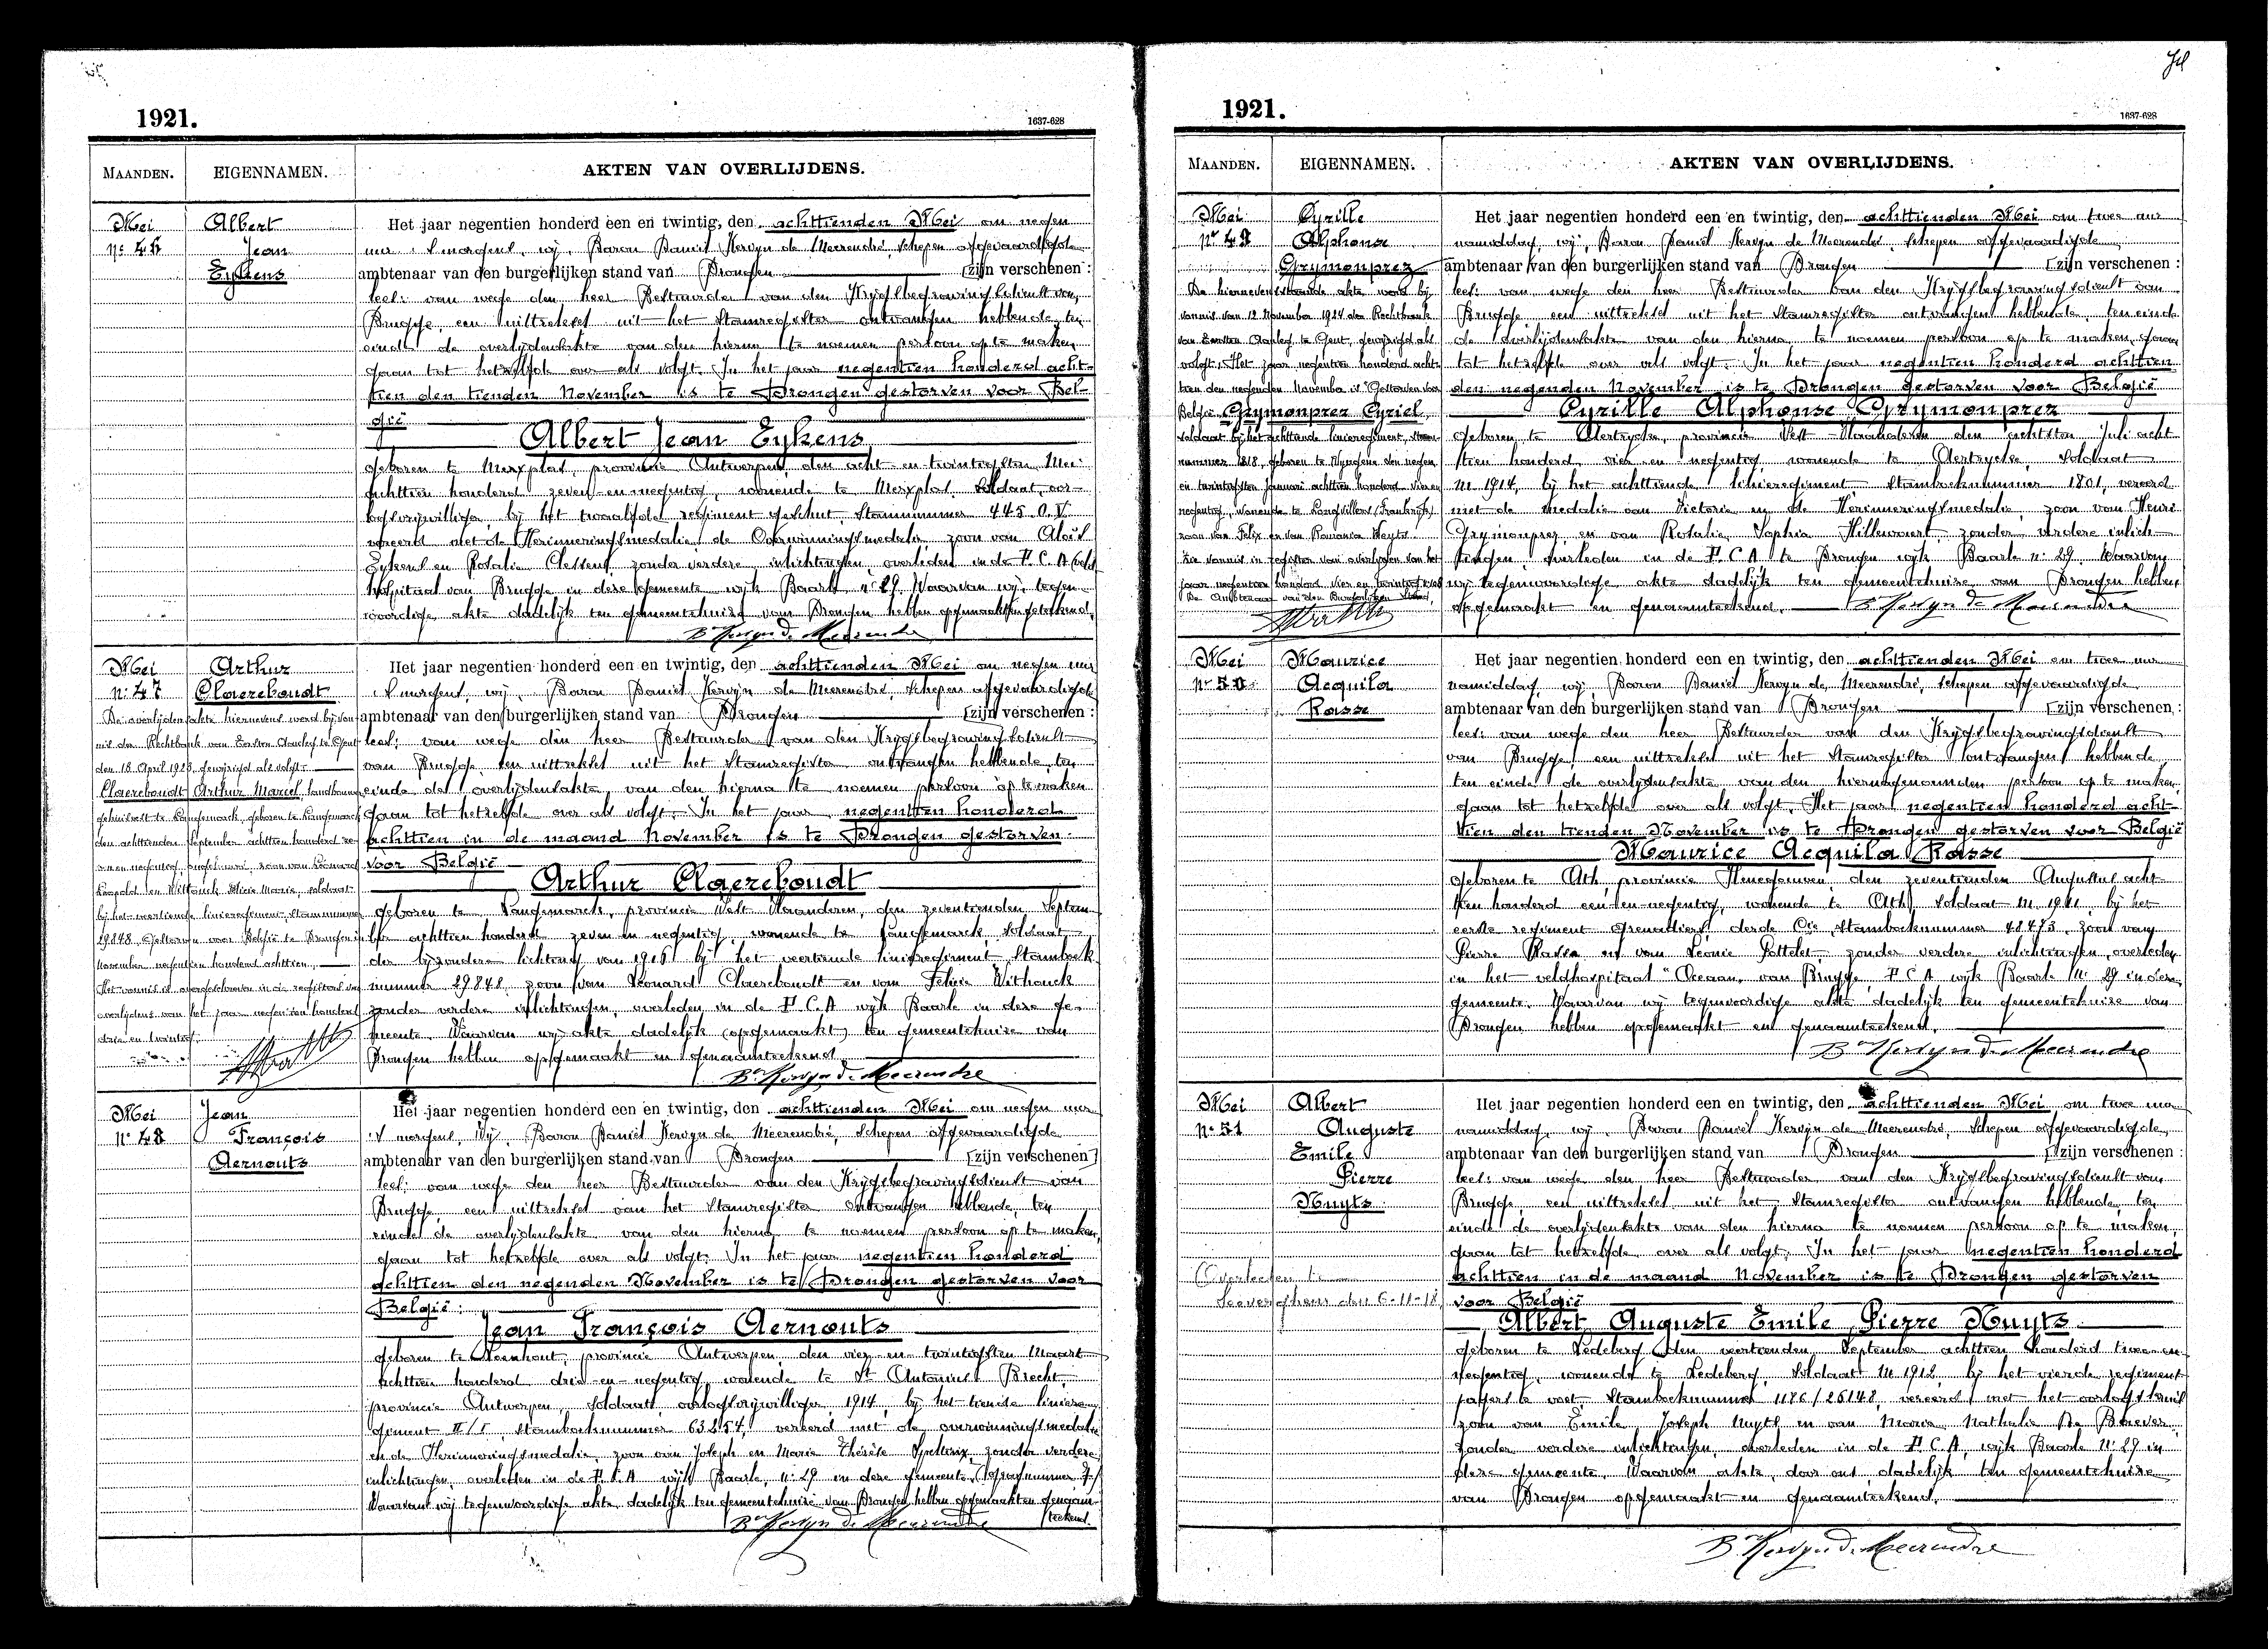 1921.
1637-628
MAANDEN.
EIGENNAMEN.
AKTEN VAN OVERLIJDENS.
Mei
Nr 46
Albert
Jean
Eykens
Het jaar negentien honderd een en twintig, den achttienden Mei om negen
uur 's morgens, wij, Baron Daniël Kervyn de Meerendré, schepen afgevaardigde
ambtenaar van den burgerlijken stand van Drongen [zijn verschenen :
van wege den heer Bestuurder van den Krijgsbegravingsdienst van
Brugge, een uittreksel uit het Stamregister ontvangen hebbende, ten
einde de overlijdensakte van den hierna te noemen persoon op te maken
gaan tot hetzelfde over als volgt. In het jaar negentien honderd acht-
tien den tienden November is te Drongen gestorven voor Bel-
gië
Albert Jean Eykens
geboren te Merxplas, provincie Antwerpen, den acht-en-twintigsten Mei
achttien honderd zeven-en-negentig, wonende te Merxplas, soldaat, oor-
logsvrijwilliger, bij het twaalfde regiment geschut, Stamnummer 445 O.V.
vereerd met de Herinneringsmedalie, de Overwinningsmedalie, zoon van Aloïs
Eykens en Rosalia Clessens, zonder verdere inlichtingen, overleden in de H.C.A (veld
hospitaal van Brugge in deze gemeente wijk Baarle nr 29. Waarvan wij tegen-
woordige akte dadelijk ten gemeentehuize van Drongen hebben opgemaakt en geteekend.
Bon Kervyn de Meerendré
Mei
Nr 47
Arthur
Claereboudt
De overlijdensakte hiernevens werd bij von-
nis der Rechtbank van Eersten Aanleg te Gent
den 18 April 1923, gewijzigd als volgt:
Claereboudt Arthur Marcel landbouwer
gehuisvest te Langemarck, geboren te Langemarck
den achttienden September achttien honderd ze-
ven en negentig, zoon van Leonard
Leopold en Withouck Felicie Marie, soldaat
bij het veertiende linieregiment, stamnummer
29848 gestorven voor België te Drongen in
November negentien honderd achttien.
Het vonnis is overgeschreven in de registers van
overlijdens van het jaar negentien honderd
drie en twintig.
Het jaar negentien honderd een en twintig, den achttienden Mei om negen uur
's morgens, wij, Baron Daniël Kervyn de Meerendré, schepen afgevaardigde
ambtenaar van den burgerlijken stand van Drongen [zijn verschenen :
van wege den heer Bestuurder van den Krijgsbegravingsdienst
van Brugge een uittreksel uit het Stamregister ontvangen hebbende, ten
einde de overlijdensakte van den hierna te noemen persoon op te maken
gaan tot hetzelfde over als volgt. In het jaar negentien honderd
achttien in de maand November is te Drongen gestorven
voor België
Arthur Claereboudt
geboren te Langemarck, provincie West Vlaanderen, den zeventienden Septem-
ber achttien honderd zeven en negentig, wonende te Langemarck, soldaat
der bijzondere lichting van 1916 bij het veertiende linieregiment, Stamboek
nummer 29848, zoon van Léonard Claereboudt en van Felicie Withouck
zonder verdere inlichtingen, overleden in de H.C.A wijk Baarle in deze ge-
meente. Waarvan wij akte dadelijk (opgemaakt) ten gemeentehuize van
Drongen hebben opgemaakt en genaamteekend.
Bon Kervyn de Meerendré
Mei
Nr 48
Jean
François
Aernouts
Het jaar negentien honderd een en twintig, den achttienden Mei om negen uur
's morgens, Wij, Baron Daniël Kervyn de Meerendré, schepen afgevaardigde
ambtenaar van den burgerlijken stand van Drongen [zijn verschenen]
van wege den heer Bestuurder van den Krijgsbegravingsdienst van
Brugge, een uittreksel van het Stamregister ontvangen hebbende, ten
einde de overlijdensakte van den hierna te noemen persoon op te maken,
gaan tot hetzelfde over als volgt. In het jaar negentien honderd
achttien den negenden November is te Drongen gestorven voor
België :
Jean François Aernouts
geboren te Loenhout, provincie Antwerpen, den vier-en-twintigsten Maart
achttien honderd drie-en-negentig, wonende te St Antonius Brecht,
provincie Antwerpen, soldaat, oorlogsvrijwilliger, 1914, bij het tiende liniere-
giment II/I, stamboeknummer 63254, vereerd met de overwinningsmedalie
en de Herinneringsmedalie, zoon van Joseph en Marie Thérèse zonder verdere
inlichtingen, overleden in de H.C.A wijk Baarle, nr 29 in deze gemeente,
Waarvan wij tegenwoordige akte dadelijk ten gemeentehuize van Drongen hebben opgemaakt en genaam-
teekend.
Bon Kervyn de Meerendré
1921.
1637-628
MAANDEN.
EIGENNAMEN.
AKTEN VAN OVERLIJDENS.
Mei
Nr 49
Cyrille
Alphonse
Grymonprez
De hiernevenstaande akte werd bij
vonnis van 12 November 1924 der Rechtbank
van Eersten Aanleg te Gent, gewijzigd als
volgt: Het jaar negentien honderd acht-
tien den negenden November is Gestorven voor
België Grymonprez Cyriel,
soldaat bij het achttiende linieregiment, stam-
nummer 1818, geboren te Wyngene den negen
en twintigsten Januari achttien honderd vier en
negentig, wonende te Longvillers (Frankrijk)
zoon van Felix en van Romania Weyts.
Het jaar negentien honderd een en twintig, den achttienden Mei om twee uur
namiddag, wij, Baron Daniël Kervyn de Meerendré, schepen afgevaardigde
ambtenaar van den burgerlijken stand van Drongen [zijn verschenen :
van wege den heer Bestuurder van den Krijgsbegravingsdienst van
Brugge, een uittreksel uit het Stamregister ontvangen hebbende, ten einde
de overlijdensakte van den hierna te noemen persoon op te maken, gaan
tot hetzelfde over als volgt: In het jaar negentien honderd achttien
den negenden November is te Drongen gestorven voor België
Cyrille Alphonse Grymonprez
geboren te Aertrycke, provincie West-Vlaanderen den achtsten Juli acht-
tien honderd vier en negentig, wonende te Aertrycke, soldaat
M. 1914, bij het achttiende linieregiment Stamboeknummer 1801, vereerd
met de medalie van Victorie en de Herinneringsmedalie, zoon van Henri
Grymonprez en van Rosalie Sophia Hillewaert, zonder verdere inlich-
tingen, overleden in de H.C.A te Drongen wijk Baarle nr 29. Waarvan
wij tegenwoordige akte dadelijk ten gemeentehuize van Drongen hebben
opgemaakt en genaamteekend.
Bon Kervyn de Meerendré
Mei
Nr 50
Maurice
Acquila
Rasse
Het jaar negentien honderd een en twintig, den achttienden Mei om twee uur
namiddag, wij, Baron Daniël Kervyn de Meerendré, schepen afgevaardigde
ambtenaar van den burgerlijken stand van Drongen [zijn verschenen :
van wege den heer Bestuurder van den Krijgsbegravingsdienst
van Brugge, een uittreksel uit het Stamregister ontvangen hebbende
ten einde de overlijdensakte van den hiernagenoemden persoon op te maken,
gaan tot hetzelfde over als volgt. Het jaar negentien honderd acht-
tien den tienden November is te Drongen gestorven voor België
Maurice Acquila Rasse
geboren te Ath, provincie Henegouwen, den zeventienden Augustus acht-
tien honderd een-en-negentig, wonende te Ath, soldaat M. 1911, bij het
eerste regiment Grenadiers, derde Cie, stamboeknummer 48473, zoon van
Pierre Rasse en van Léonie Pottelet, zonder verdere inlichtingen, overleden
in het veldhospitaal "Oceaan" van Brugge, H.C.A wijk Baarle Nr 29 in deze
gemeente. Waarvan wij tegenwoordige akte dadelijk ten gemeentehuize van
Drongen hebben opgemaakt en genaamteekend.
Bon Kervyn de Meerendré
Mei
Nr 51
Albert
Auguste
Emile
Pierre
Nuyts
Overleden te
Zeeverghem den 6-11-18
Het jaar negentien honderd een en twintig, den achttienden Mei om twee uur
namiddag, wij, Baron Daniël Kervyn de Meerendré, schepen afgevaardigde
ambtenaar van den burgerlijken stand van Drongen [zijn verschenen :
van wege den heer Bestuurder van den Krijgsbegravingsdienst van
Brugge, een uittreksel uit het Stamregister ontvangen hebbende, ten
einde de overlijdensakte van den hierna te noemen persoon op te maken,
gaan tot hetzelfde over als volgt. In het jaar negentien honderd
achttien in de maand November is te Drongen gestorven
voor België
Albert Auguste Emile Pierre Nuyts
geboren te Ledeberg den veertienden September achttien honderd twee en
negentig, wonende te Ledeberg, Soldaat M. 1912 bij het vierde regiment
jagers te voet, Stamboeknummer 1176/26148, vereerd met het oorlogskruis
zoon van Emile Joseph Nuyts en van Maria Nathalie De Baever,
zonder verdere inlichtingen, overleden in de H.C.A, wijk Baarle Nr 29 in
deze gemeente. Waarvan akte, door ons, dadelijk ten gemeentehuize
van Drongen opgemaakt en genaamteekend.
Bon Kervyn de Meerendré